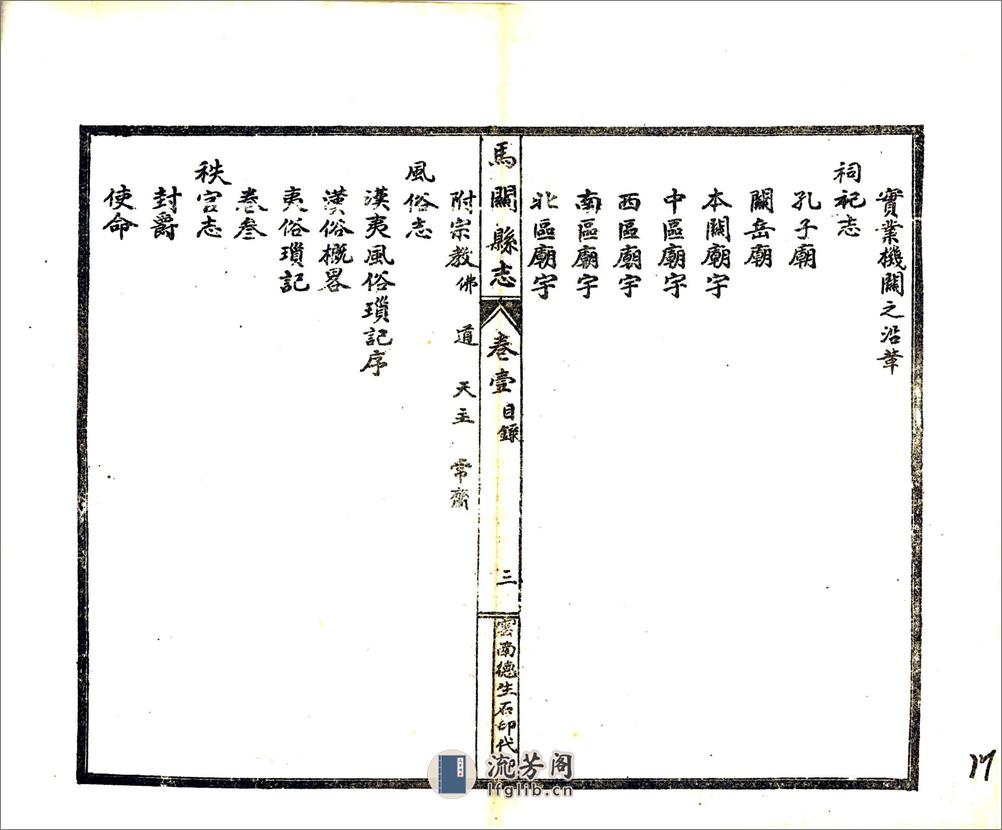 實業機關之沿革
祠祀志
孔子廟
關岳廟
本關廟宇
中區廟宇
西區廟宇
南區廟宇
北區廟宇
馬關縣志
卷壹目錄
三
雲南德生石印代
附宗教佛 道 天主 常齋
風俗志
漢夷風俗瑣記序
漢俗概畧
夷俗瑣記
卷叁
秩官志
封爵
使命
17
流芳阁
lfglib.cn